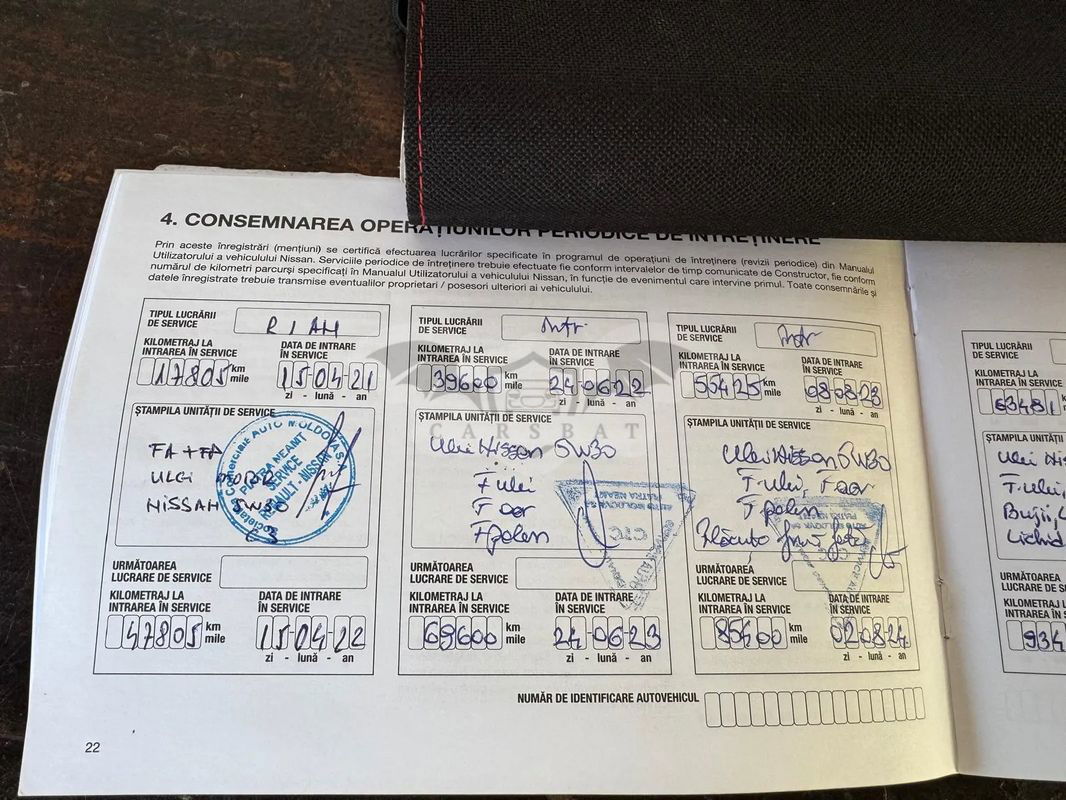 4. CONSEMNAREA OPERAȚIUNILOR PERIODICE DE ÎNTREȚINERE
Prin aceste înregistrări (mențiuni) se certifică efectuarea lucrărilor specificate în programul de operațiuni de întreținere (revizii periodice) din Manualul
Utilizatorului a vehiculului Nissan. Serviciile periodice de întreținere trebuie efectuate fie conform intervalelor de timp comunicate de Constructor, fie conform
numărul de kilometri parcurși specificați în Manualul Utilizatorului a vehiculului Nissan, în funcție de evenimentul care intervine primul. Toate consemnările și
datele înregistrate trebuie transmise eventualilor proprietari / posesori ulteriori ai vehiculului.
TIPUL LUCRĂRII
DE SERVICE
KILOMETRAJ LA
INTRAREA ÎN SERVICE
17805 km
mile
DATA DE INTRARE
ÎN SERVICE
15-04-21
zi - lună - an
ȘTAMPILA UNITĂȚII DE SERVICE
FA+FP
ULEI
NISSAN 5W30
C3
AUTO MOLDOVA
PIATRA NEAMT
SERVICE
RENAULT - NISSAN
URMĂTOAREA
LUCRARE DE SERVICE
KILOMETRAJ LA
INTRAREA ÎN SERVICE
47805 km
mile
DATA DE INTRARE
ÎN SERVICE
15-04-22
zi - lună - an
TIPUL LUCRĂRII
DE SERVICE
KILOMETRAJ LA
INTRAREA ÎN SERVICE
39600 km
mile
DATA DE INTRARE
ÎN SERVICE
24-06-22
zi - lună - an
ȘTAMPILA UNITĂȚII DE SERVICE
Ulei Nissan 5W30
F ulei
F aer
F polen
AUTO MOLDOVA SA
PIATRA NEAMT
CTC
URMĂTOAREA
LUCRARE DE SERVICE
KILOMETRAJ LA
INTRAREA ÎN SERVICE
69600 km
mile
DATA DE INTRARE
ÎN SERVICE
24-06-23
zi - lună - an
TIPUL LUCRĂRII
DE SERVICE
KILOMETRAJ LA
INTRAREA ÎN SERVICE
55425 km
mile
DATA DE INTRARE
ÎN SERVICE
08-08-23
zi - lună - an
ȘTAMPILA UNITĂȚII DE SERVICE
Ulei Nissan 5W30
F ulei, F aer
F polen
Plăcuțe frână față
URMĂTOAREA
LUCRARE DE SERVICE
KILOMETRAJ LA
INTRAREA ÎN SERVICE
85400 km
mile
DATA DE INTRARE
ÎN SERVICE
02-08-24
zi - lună - an
NUMĂR DE IDENTIFICARE AUTOVEHICUL
22
TIPUL LUCRĂRII
DE SERVICE
KILOMETRAJ LA
INTRAREA ÎN SERVICE
63481
ȘTAMPILA UNITĂȚII
Ulei
F ulei,
Bujii,
Lichid
URMĂTOAREA
LUCRARE DE
KILOMETRAJ
INTRAREA ÎN
934
CARSBAT